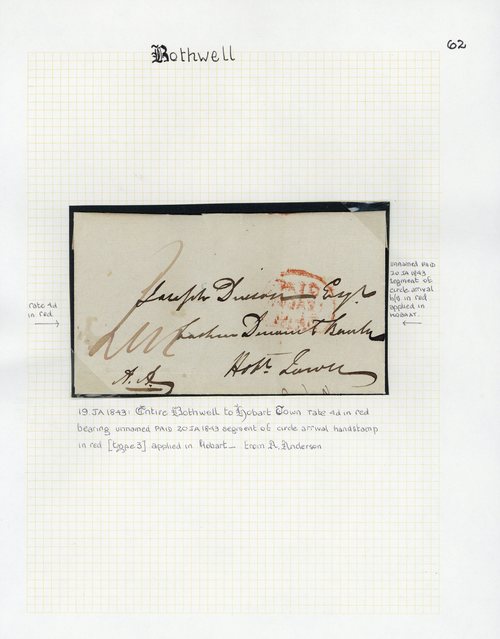 Bothwell
62
unnamed PAID
20 JA 1843
segment of
circle arrival
h/s in red
applied in
HOBART.
rate 4d
in red
PAID
JA
Joseph Dixson Esqr
Hobt. Town
A.A.
19 JA 1843: Entire Bothwell to Hobart Town rate 4d in red
bearing unnamed PAID 20 JA 1843 segment of circle arrival handstamp
in red [type 3] applied in Hobart — from A. Anderson